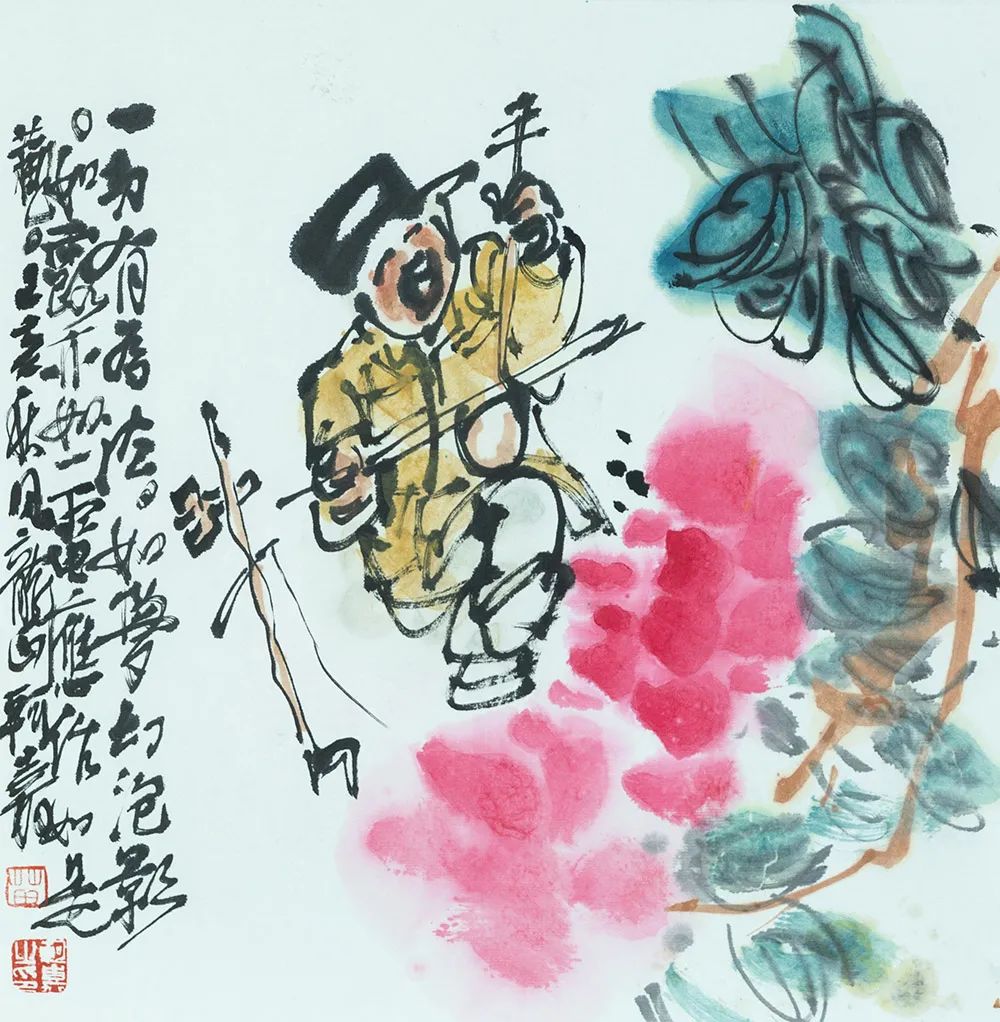 一切有為法。如夢幻泡影
。如露亦如電應作如是
觀。己亥秋月龍山